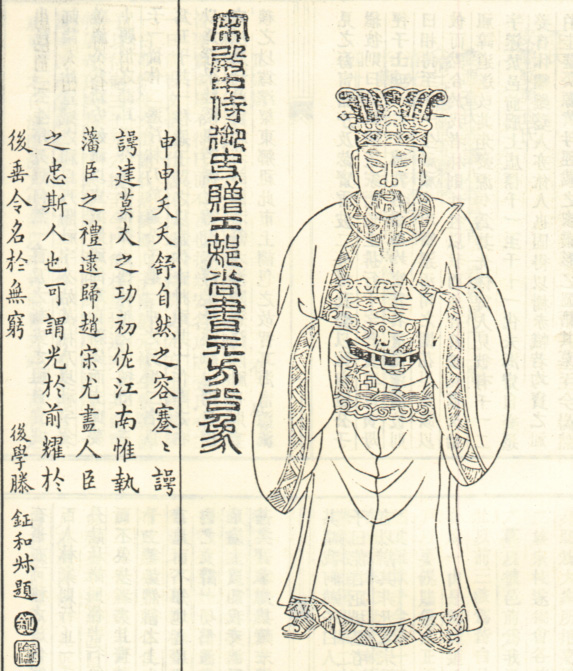 宋殿中侍御史贈工部尚書元方公象
申申夭夭舒自然之容塞〻諤
諤達莫大之功初佐江南惟執
藩臣之禮逮歸趙宋尤盡人臣
之忠斯人也可謂光於前耀於
後垂令名於無窮
後學滕鉦和題